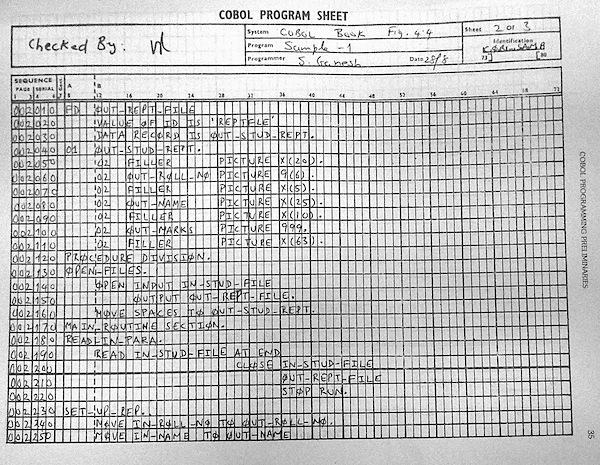 COBOL PROGRAM SHEET
Checked By:
System COBOL Book Fig. 4.4
Program Sample-1
Programmer S. Ganesh Date 28/8
Sheet 2 of 3
Identification
73] [80
SEQUENCE
PAGE SERIAL
A B
1 3 4 6 7 8 12 16 20 24 28 32 36 40 44 48 52 56 60 64 68 72
002010 FD OUT-REPT-FILE
002020 VALUE OF ID IS 'REPTFLE'
002030 DATA RECORD IS OUT-STUD-REPT.
002040 01 OUT-STUD-REPT.
002050 02 FILLER PICTURE X(20).
002060 02 OUT-ROLL-NO PICTURE 9(6).
002070 02 FILLER PICTURE X(5).
002080 02 OUT-NAME PICTURE X(25).
002090 02 FILLER PICTURE X(10).
002100 02 OUT-MARKS PICTURE 999.
002110 02 FILLER PICTURE X(63).
002120 PROCEDURE DIVISION.
002130 OPEN-FILES.
002140 OPEN INPUT IN-STUD-FILE
002150 OUTPUT OUT-REPT-FILE.
002160 MOVE SPACES TO OUT-STUD-REPT.
002170 MAIN-ROUTINE SECTION.
002180 READLIN-PARA.
002190 READ IN-STUD-FILE AT END
002200 CLOSE IN-STUD-FILE
002210 OUT-REPT-FILE
002220 STOP RUN.
002230 SET-UP-REP.
002240 MOVE IN-ROLL-NO TO OUT-ROLL-NO.
002250 MOVE IN-NAME TO OUT-NAME
COBOL PROGRAMMING PRELIMINARIES
35